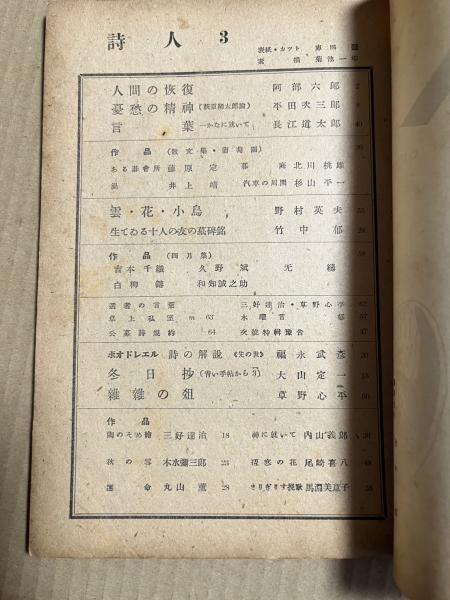 詩人 3
表紙・カット
人間の恢復 阿部六郎
憂愁の精神 (萩原朔太郎論) 平田次三郎
言葉 ―かなに就いて 長江道太郎 40
作品 (散文集・葡萄園)
ある碁會所 藤原定 墓 北川桃雄
井上靖 汽車の周囲 杉山平一
雲・花・小鳥 野村英夫
生てゐる十人の友の墓碑銘 竹中郁
作品 (四月集)
吉本千鶴 久野斌 无
白柳 和知誠之助
選者の言葉 三好達治・草野心平
卓上私室 m 63 木曜言 郁
公募詩規約 64 次號特輯豫告 47
ボオドレエル 詩の解説 《先の世》 福永武彦
冬日抄 (青い手帖から 3) 大山定一
雜雜の俎 草野心平
作品
陶のそめ繪 三好達治 18 神に就いて 內山義郎
秋の 木水彌三郎 23 の花 尾崎喜八
運命 丸山薫 28 きりぎりす挽歌 馬淵美意子